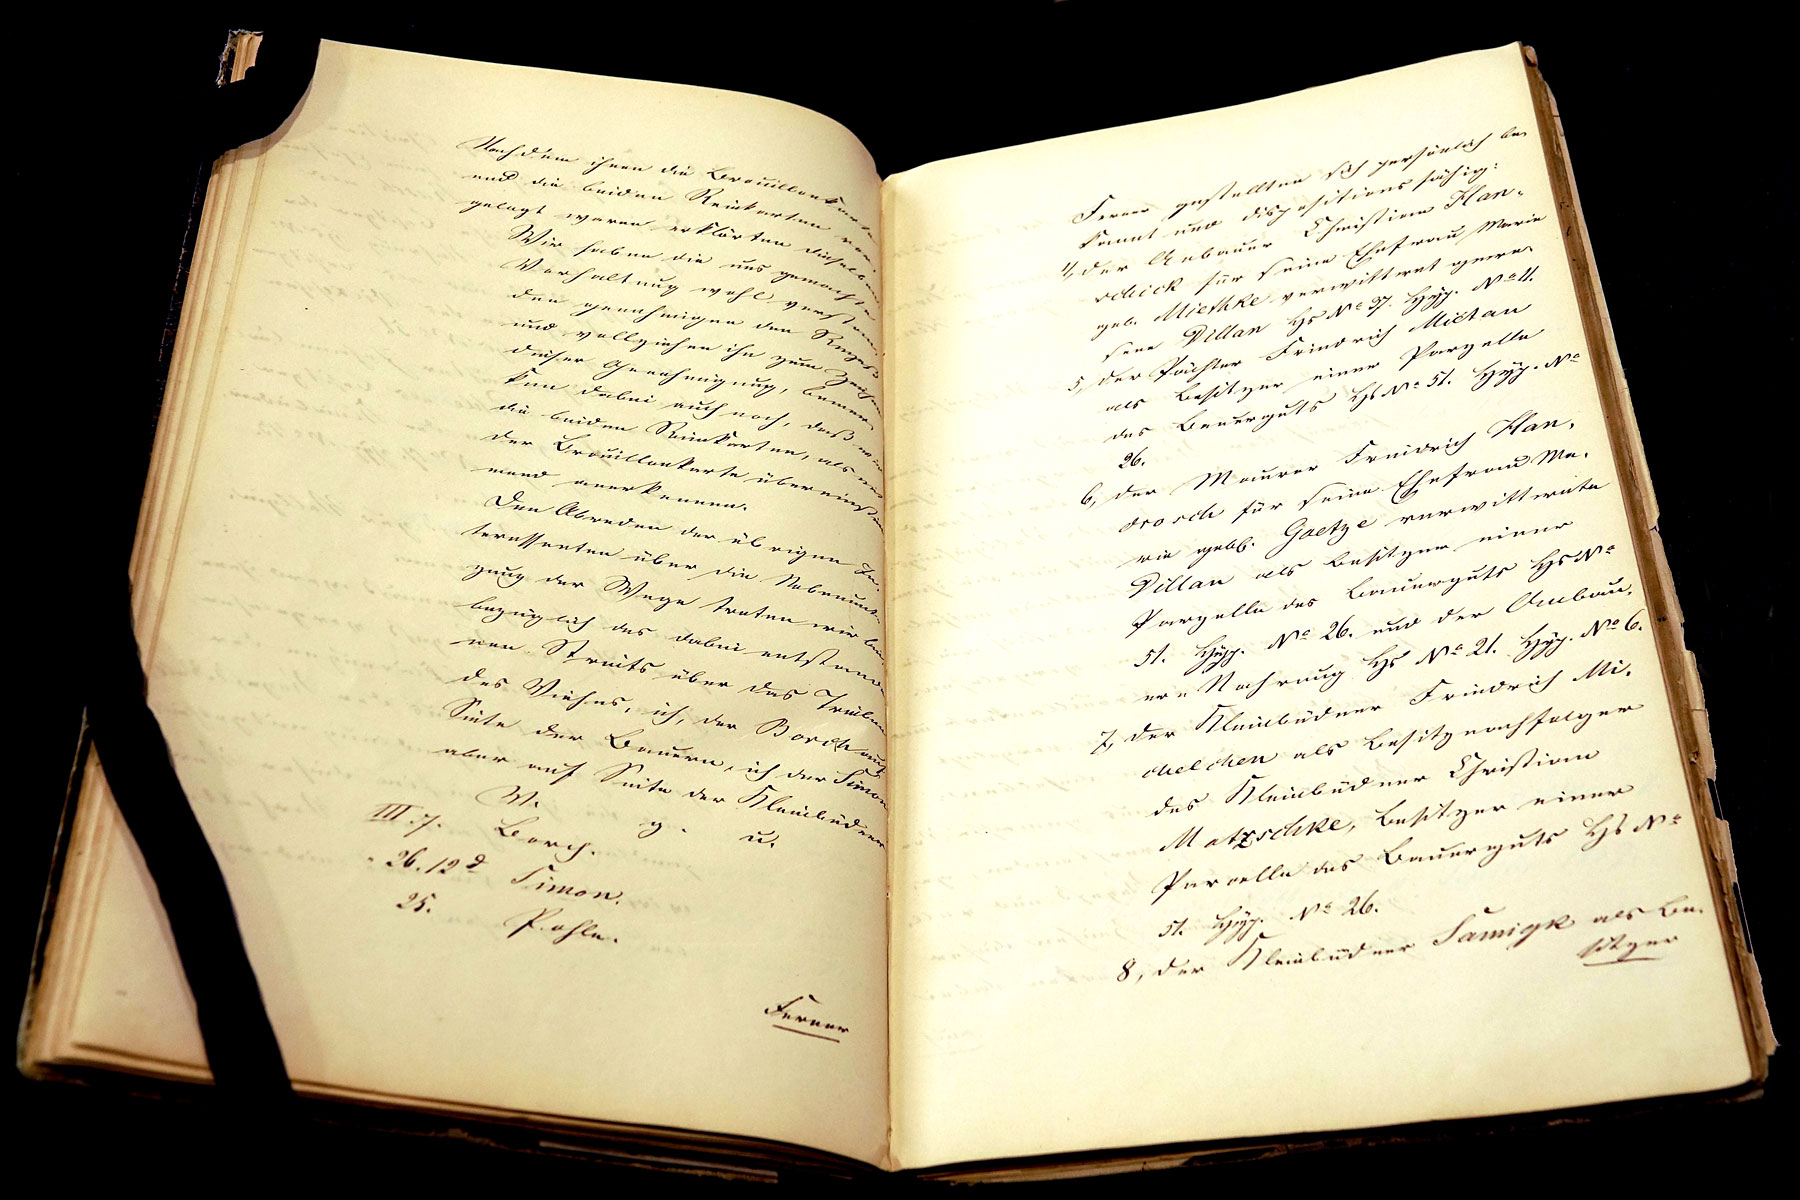 Nachdem ihnen die Brouillonkarte
und die beiden Reinkarten vor-
gelegt waren erklärten dieselben
Wir haben die uns gemachte
Vorhaltung wohl verstan-
den genehmigen den Rezeß
und vollziehen ihn zum Zeichen
dieser Genehmigung, bemer-
ken dabei auch noch, daß wir
die beiden Reinkarten, als mit
der Brouillonkarte übereinstim-
mend anerkennen.
Den Abreden der übrigen In-
teressenten über die Nebennut-
zung der Wege treten wir bei
bezüglich des dabei entstande-
nen Streits über das Treiben
des Viehes, ich, der Borch auf
Seite der Bauern, ich der Simon
aber auf Seite der Kleinbüdner
V. g. u.
III. 7. Borch.
" 26. 12 d Simon.
25. Pohle.
Ferner
Ferner gestellten sich persönlich be-
kannt und dispositionsfähig:
4, der Anbauer Christian Han-
schick für seine Ehefrau Marie
geb. Miethke verwittwet gewe-
sene Dillan Hs No 37. Hyp. No 11.
5, der Pächter Friedrich Mietan
als Besitzer einer Parzelle
des Bauerguts Hs No 51. Hyp. No
26.
6, der Maurer Friedrich Han-
drosch für seine Ehefrau Ma-
rie gebh. Goetze verwittwete
Dillan als Besitzer einer
Parzelle des Bauerguts Hs No
51. Hyp. No 26. und der Anbau-
er-Nahrung Hs No 21. Hyp. No 6.
7, der Kleinbüdner Friedrich Mi-
chelchen als Besitznachfolger
des Kleinbüdner Christian
Matzschke, Besitzer einer
Parcelle des Bauerguts Hs No
51. Hyp. No 26.
8, der Kleinbüdner Samigk als Be-
sitzer